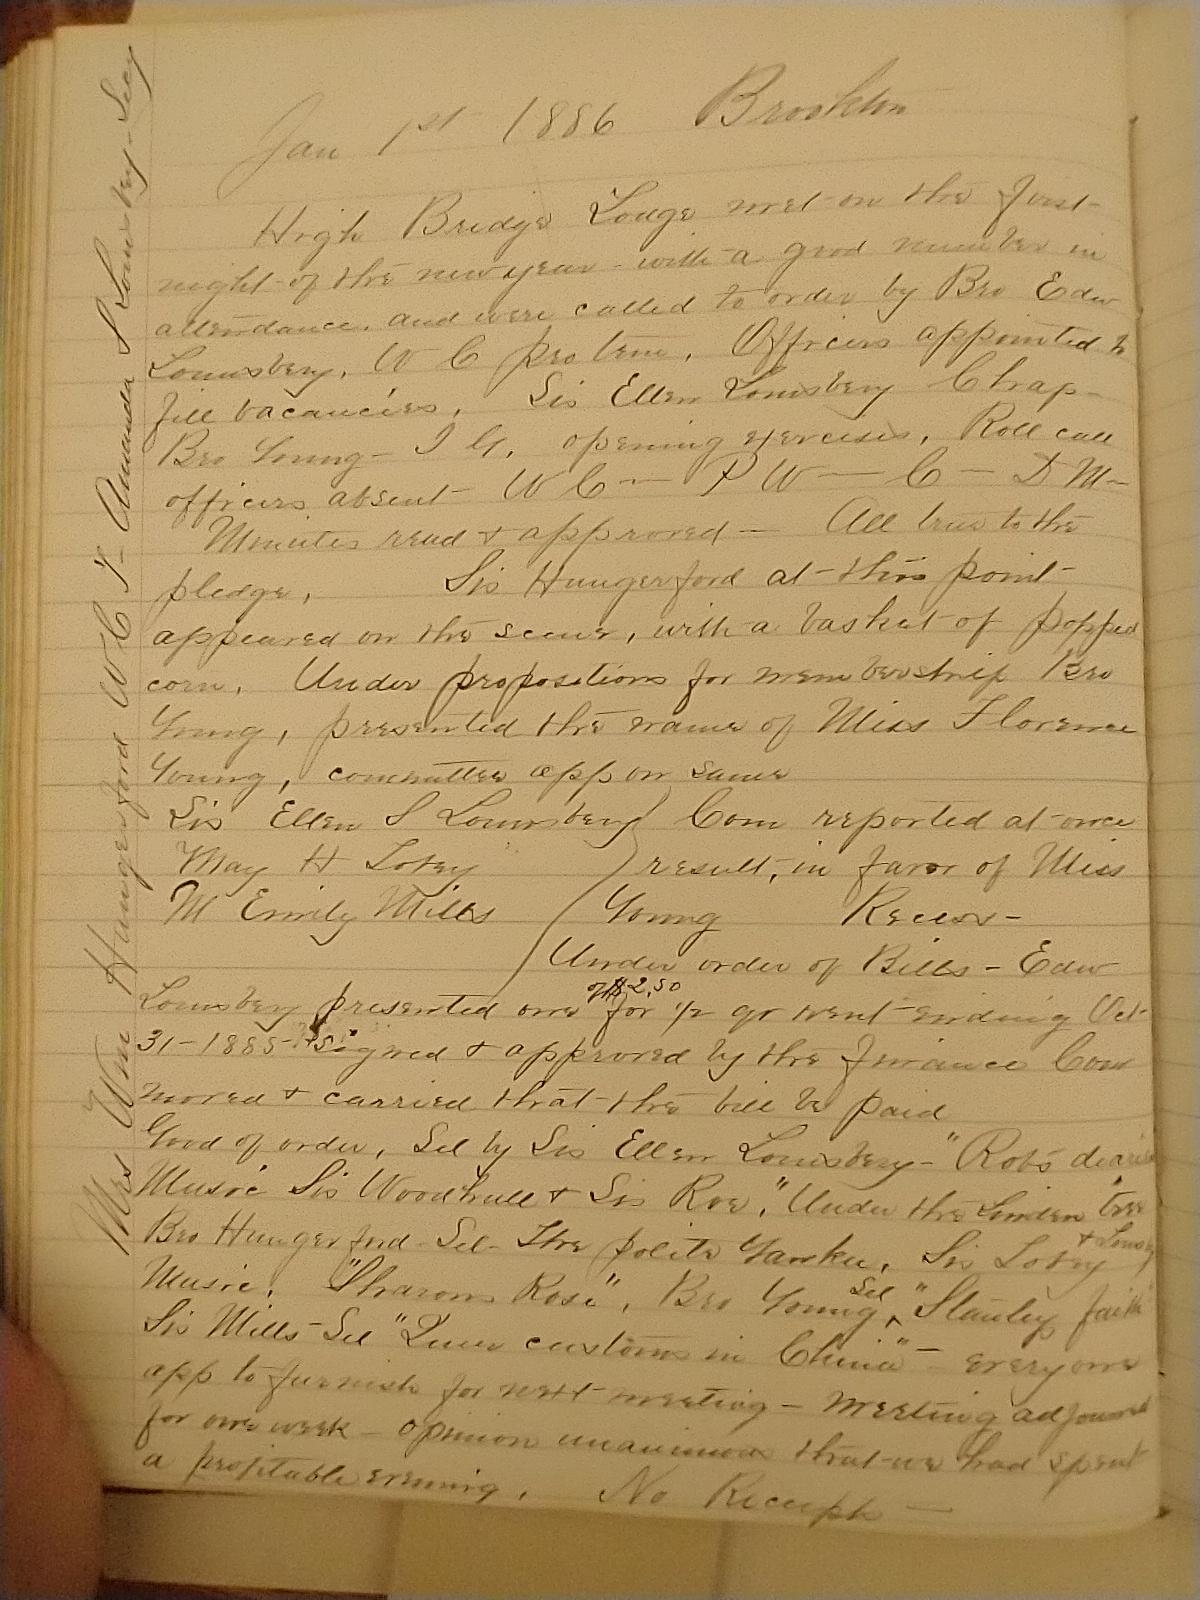 Jan 1st 1886 Brookton
High Bridge Lodge met on the first
night of the new year - with a good number in
attendance. and were called to order by Bro Edw
Lounsbery, W C pro tem. Officers appointed to
fill vacancies. Sis Ellen Lounsbery Chap-
Bro Young - I G. opening exercises. Roll call
officers absent - W C - P W - C - D M -
Minutes read & approved - All true to the
pledge. Sis Hungerford at this point
appeared on the scene, with a basket of popped
corn. Under propositions for membership Bro
Young, presented the name of Miss Florence
Young, committee app on same
Sis Ellen S Lounsbery } Com reported at once
May H Lobey } result, in favor of Miss
M Emily Mills ( Young Recess -
Under order of Bills - Edw
Lounsbery presented one of $2.50 for 1/2 qr rent ending Oct
31 - 1885 - signed & approved by the finance Com
moved & carried that the bill be paid
Good of order, Sel by Sis Ellen Lounsbery - "Rob's
Music Sis Woodhull & Sis Roe, "Under the Linden tree"
Bro Hungerford - Sel - The polite Yankee, Sis Lobey &
Music, "Sharons Rose", Bro Young Sel, "Stanley faith
Sis Mills - Sel "Queer customs in China" - everyone
app to furnish for next meeting - meeting adjourned
for one week - opinion unanimous that we had spent
a profitable evening. No Receipts -
Mrs Wm Hungerford W C T - Amanda S Lounsbery - Secy